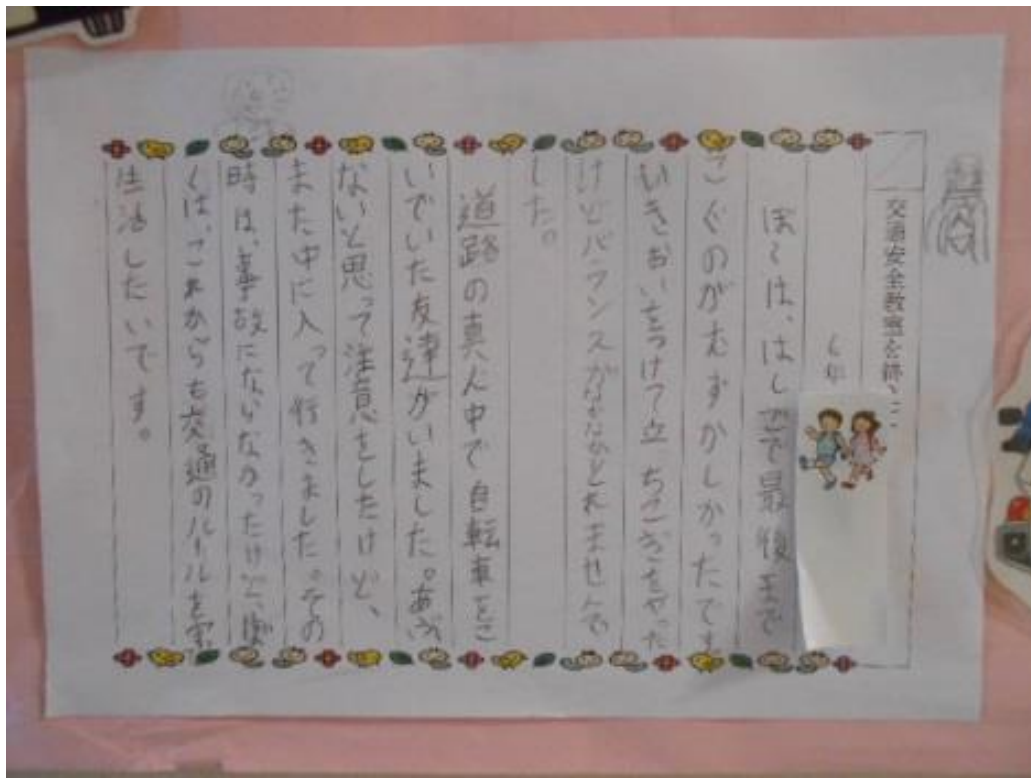 交通安全教室を終えて
6年
ぼくは、はしまで最後まで
こぐのがむずかしかったです。
いきおいをつけて立ちこぎをやった
けどバランスがなかなかとれませんで
した。
道路の真ん中で自転車をこ
いでいた友達がいました。あぶ
ないと思って注意をしたけど、
また中に入って行きました。その
時は、事故にならなかったけど、ぼ
くは、これからも交通のルールを守って
生活したいです。